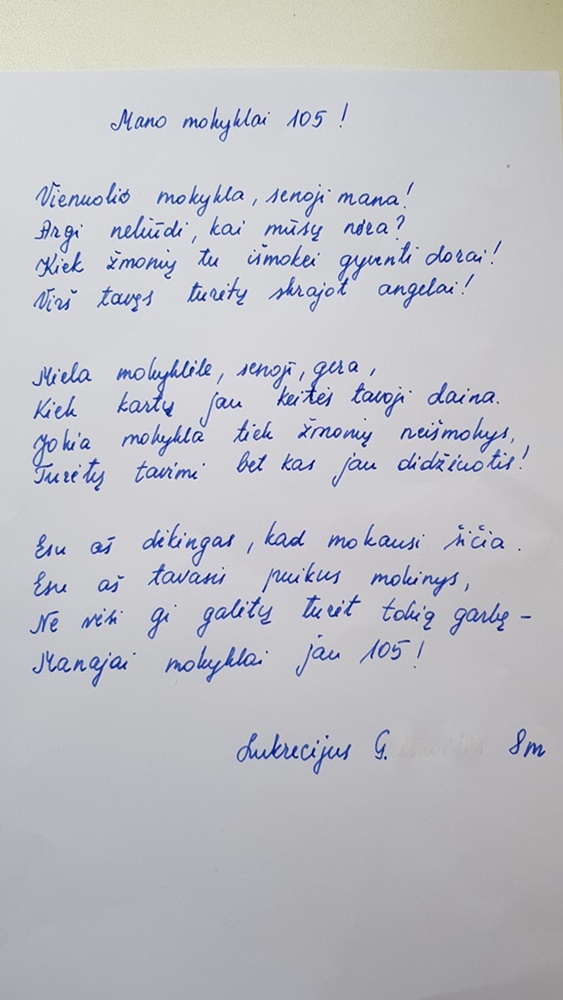 Mano mokyklai 105!
Vienuolio mokykla, senoji mana!
Argi neliūdi, kai mūsų nėra?
Kiek žmonių tu išmokei gyventi dorai!
Virš tavęs turėtų skrajot angelai!
Miela mokyklėle, senoji, gera,
Kiek kartų jau keitės tavoji daina.
Jokia mokykla tiek žmonių neišmokys,
Turėtų tavimi bet kas jau didžiuotis!
Esu aš dėkingas, kad mokausi šičia.
Esu aš tavasis puikus mokinys,
Ne visi gi galėtų turėt tokią garbę -
Manajai mokyklai jau 105!
Lukrecijus G. 8m